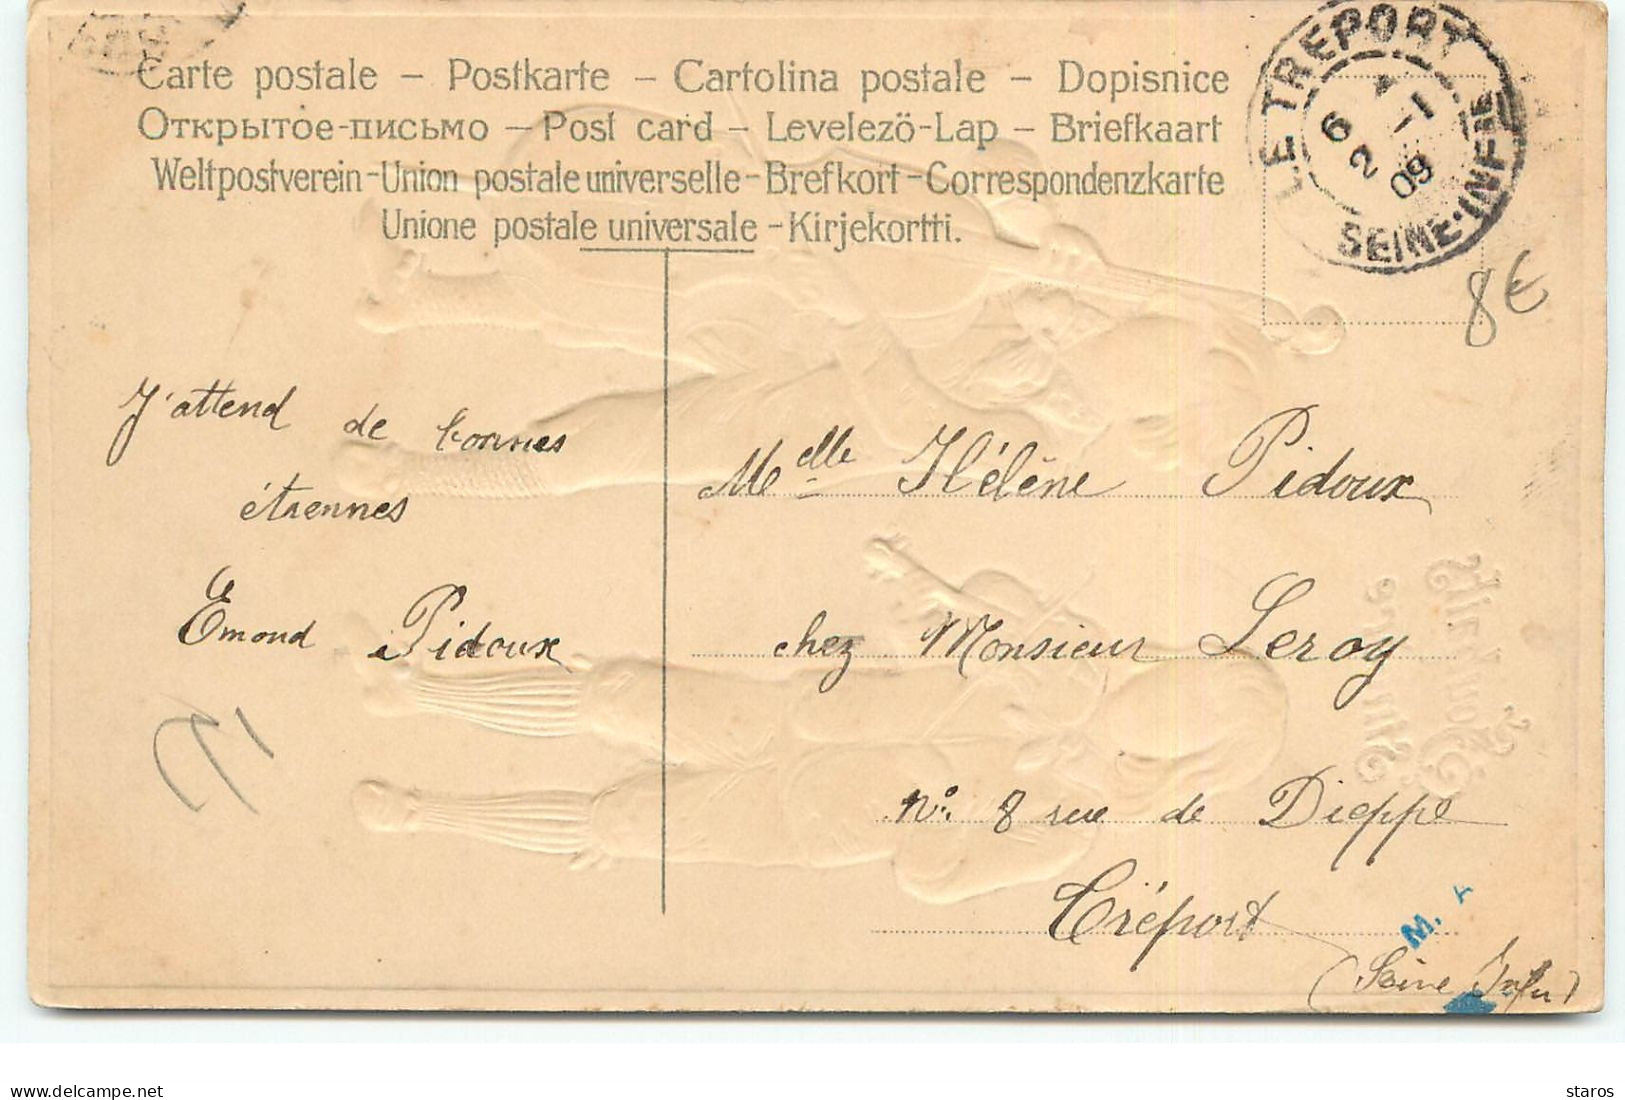 Carte postale – Postkarte – Cartolina postale – Dopisnice
Открытое-письмо – Post card – Levelezö-Lap – Briefkaart
Weltpostverein-Union postale universelle-Brefkort-Correspondenzkarte
Unione postale universale-Kirjekortti.
LE TREPORT
6
2 -1
09
SEINE-INFRE
8€
J'attend de bonnes
étrennes
Emond Pidoux
Melle Hélène Pidoux
chez Monsieur Leroy
N°. 8 rue de Dieppe
Tréport
(Seine Infre)
M.
delcampe.net
staros